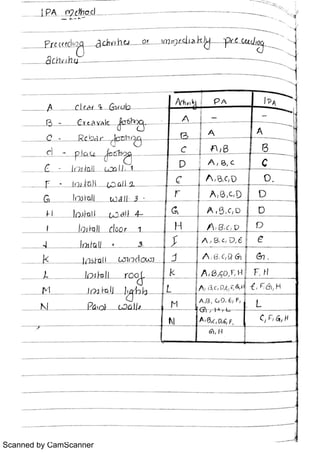 IPA method
Preceding activities or immediately preceeding
activities
A clear & Grub
B - Excavate footing
C - Rebar footing
d - place footing
E - Install wall 1
F - Install wall 2
G Install wall 3
H Install wall 4
I Install door 1
J Install 3
K Install windows
L Install roof
M Install lights
N Paint walls
Activity PA IPA
A - -
B A A
C A,B B
D A, B, C C
A,B,C,D D.
F A,B,C,D D
G A,B,C,D D
H A,B,C,D D
A,B,C,D,E E
J A,B,C,D,G G.
K A,B,C,D,F,H F, H
L A,B,C,D,E,F,G,H E, F, G, H
M A,B,C,D,E,F, L
G, H, L
N A,B,C,D,G,F, C, F, G, H
G, H
Scanned by CamScanner